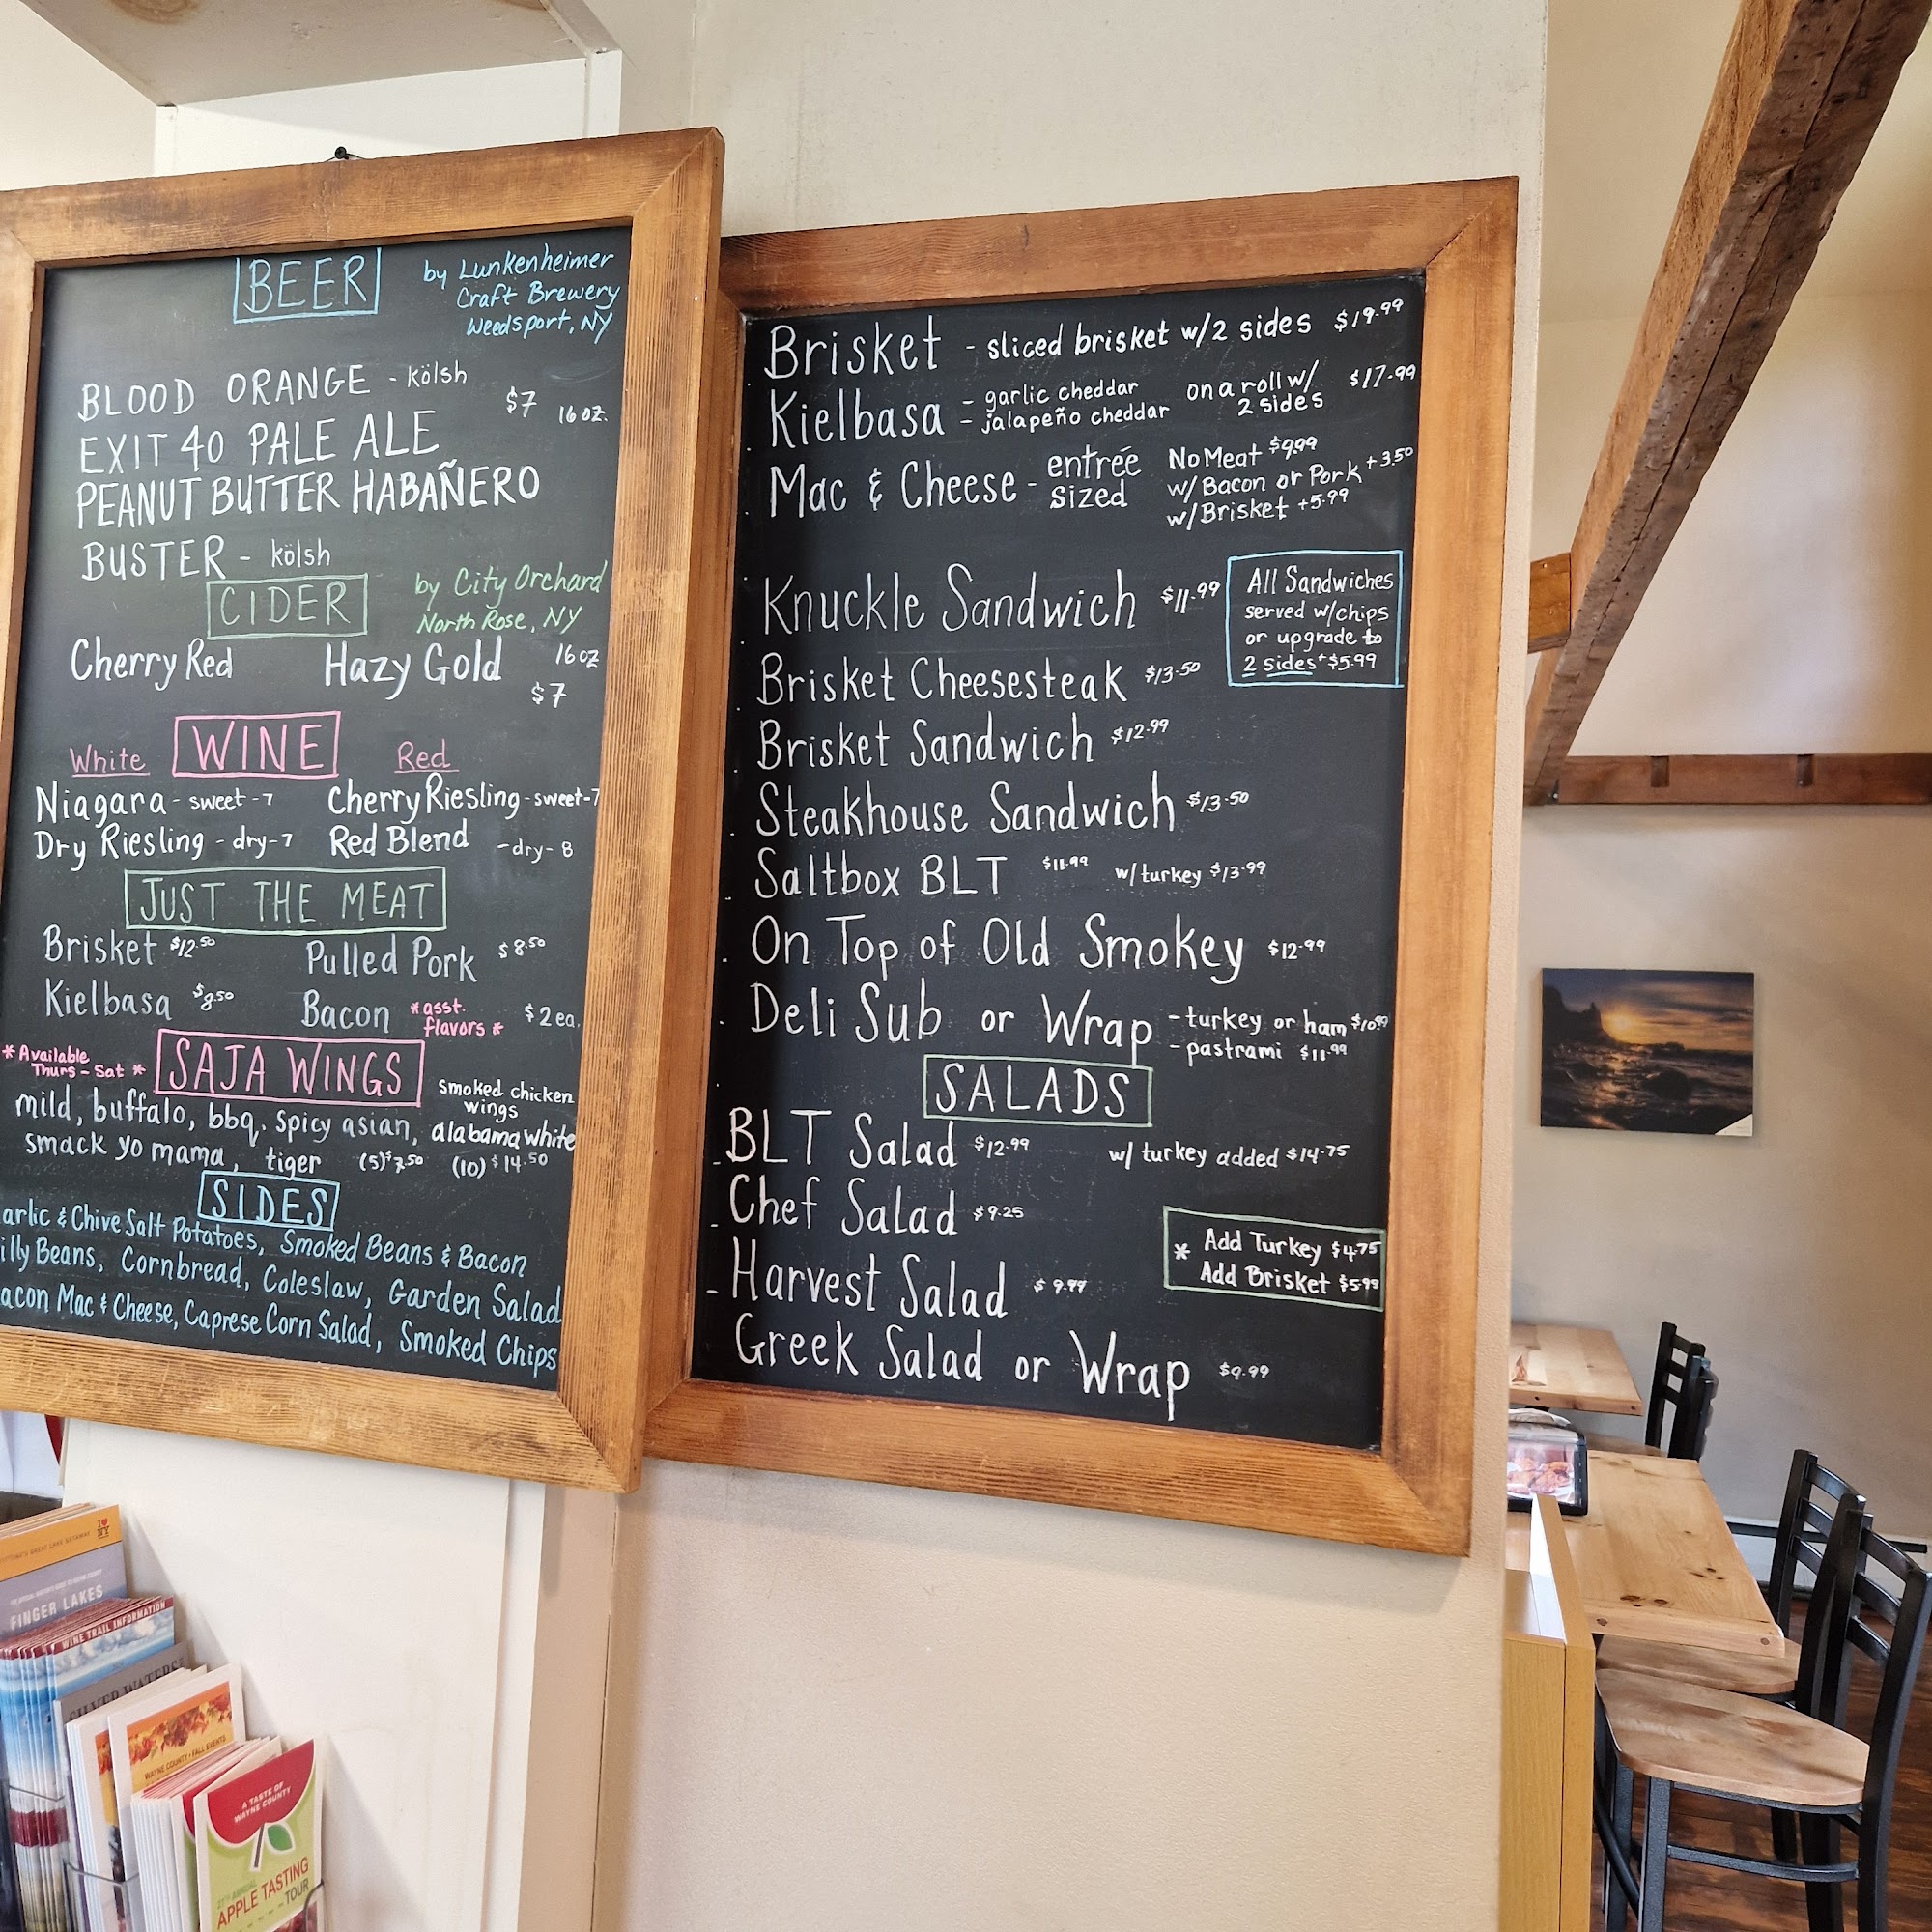 BEER
by Lunkenheimer
Craft Brewery
Weedsport, NY
BLOOD ORANGE - kölsh
EXIT 40 PALE ALE
$7 16 oz.
PEANUT BUTTER HABAÑERO
BUSTER - kölsh
CIDER
by City Orchard
North Rose, NY
Cherry Red Hazy Gold 16 oz
$7
WINE
White Red
Niagara - sweet - 7 Cherry Riesling - sweet - 7
Dry Riesling - dry - 7 Red Blend - dry - 8
JUST THE MEAT
Brisket $12.50 Pulled Pork $8.50
Kielbasa $8.50 Bacon *asst. flavors* $2 ea.
*Available
Thurs - Sat *
SAJA WINGS
smoked chicken
wings
mild, buffalo, bbq. spicy asian, alabama white
smack yo mama, tiger (5) $7.50 (10) $14.50
SIDES
arlic & Chive Salt Potatoes, Smoked Beans & Bacon
illy Beans, Cornbread, Coleslaw, Garden Salad
acon Mac & Cheese, Caprese Corn Salad, Smoked Chips
Brisket - sliced brisket w/2 sides $19.99
Kielbasa - garlic cheddar
- jalapeño cheddar
on a roll w/
2 sides
$17.99
Mac & Cheese - entrée
sized
No Meat $9.99
w/ Bacon or Pork +3.50
w/ Brisket +5.99
Knuckle Sandwich $11.99
All Sandwiches
served w/chips
or upgrade to
2 sides +$5.99
Brisket Cheesesteak $13.50
Brisket Sandwich $12.99
Steakhouse Sandwich $13.50
Saltbox BLT $11.99 w/ turkey $13.99
On Top of Old Smokey $12.99
Deli Sub or Wrap - turkey or ham $10.99
- pastrami $11.99
SALADS
BLT Salad $12.99 w/ turkey added $14.75
Chef Salad $9.25
* Add Turkey $4.75
Add Brisket $5.99
Harvest Salad $9.99
Greek Salad or Wrap $9.99
I NY
FINGER LAKES
WINE TRAIL INFORMATION
SILVER WATERS
WAYNE COUNTY FALL EVENTS
A TASTE OF
WAYNE COUNTY
ANNUAL
APPLE TASTING
TOUR